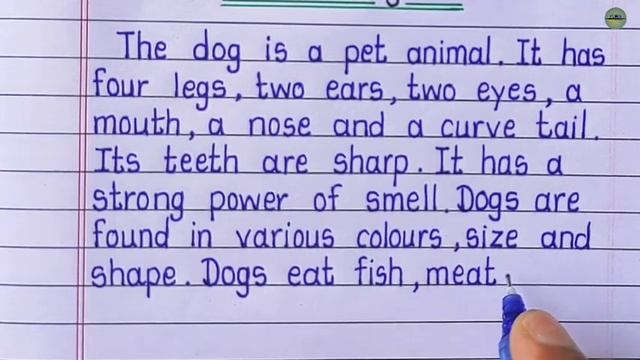 The dog is a pet animal. It has
four legs, two ears, two eyes, a
mouth, a nose and a curve tail.
Its teeth are sharp. It has a
strong power of smell. Dogs are
found in various colours, size and
shape. Dogs eat fish, meat,